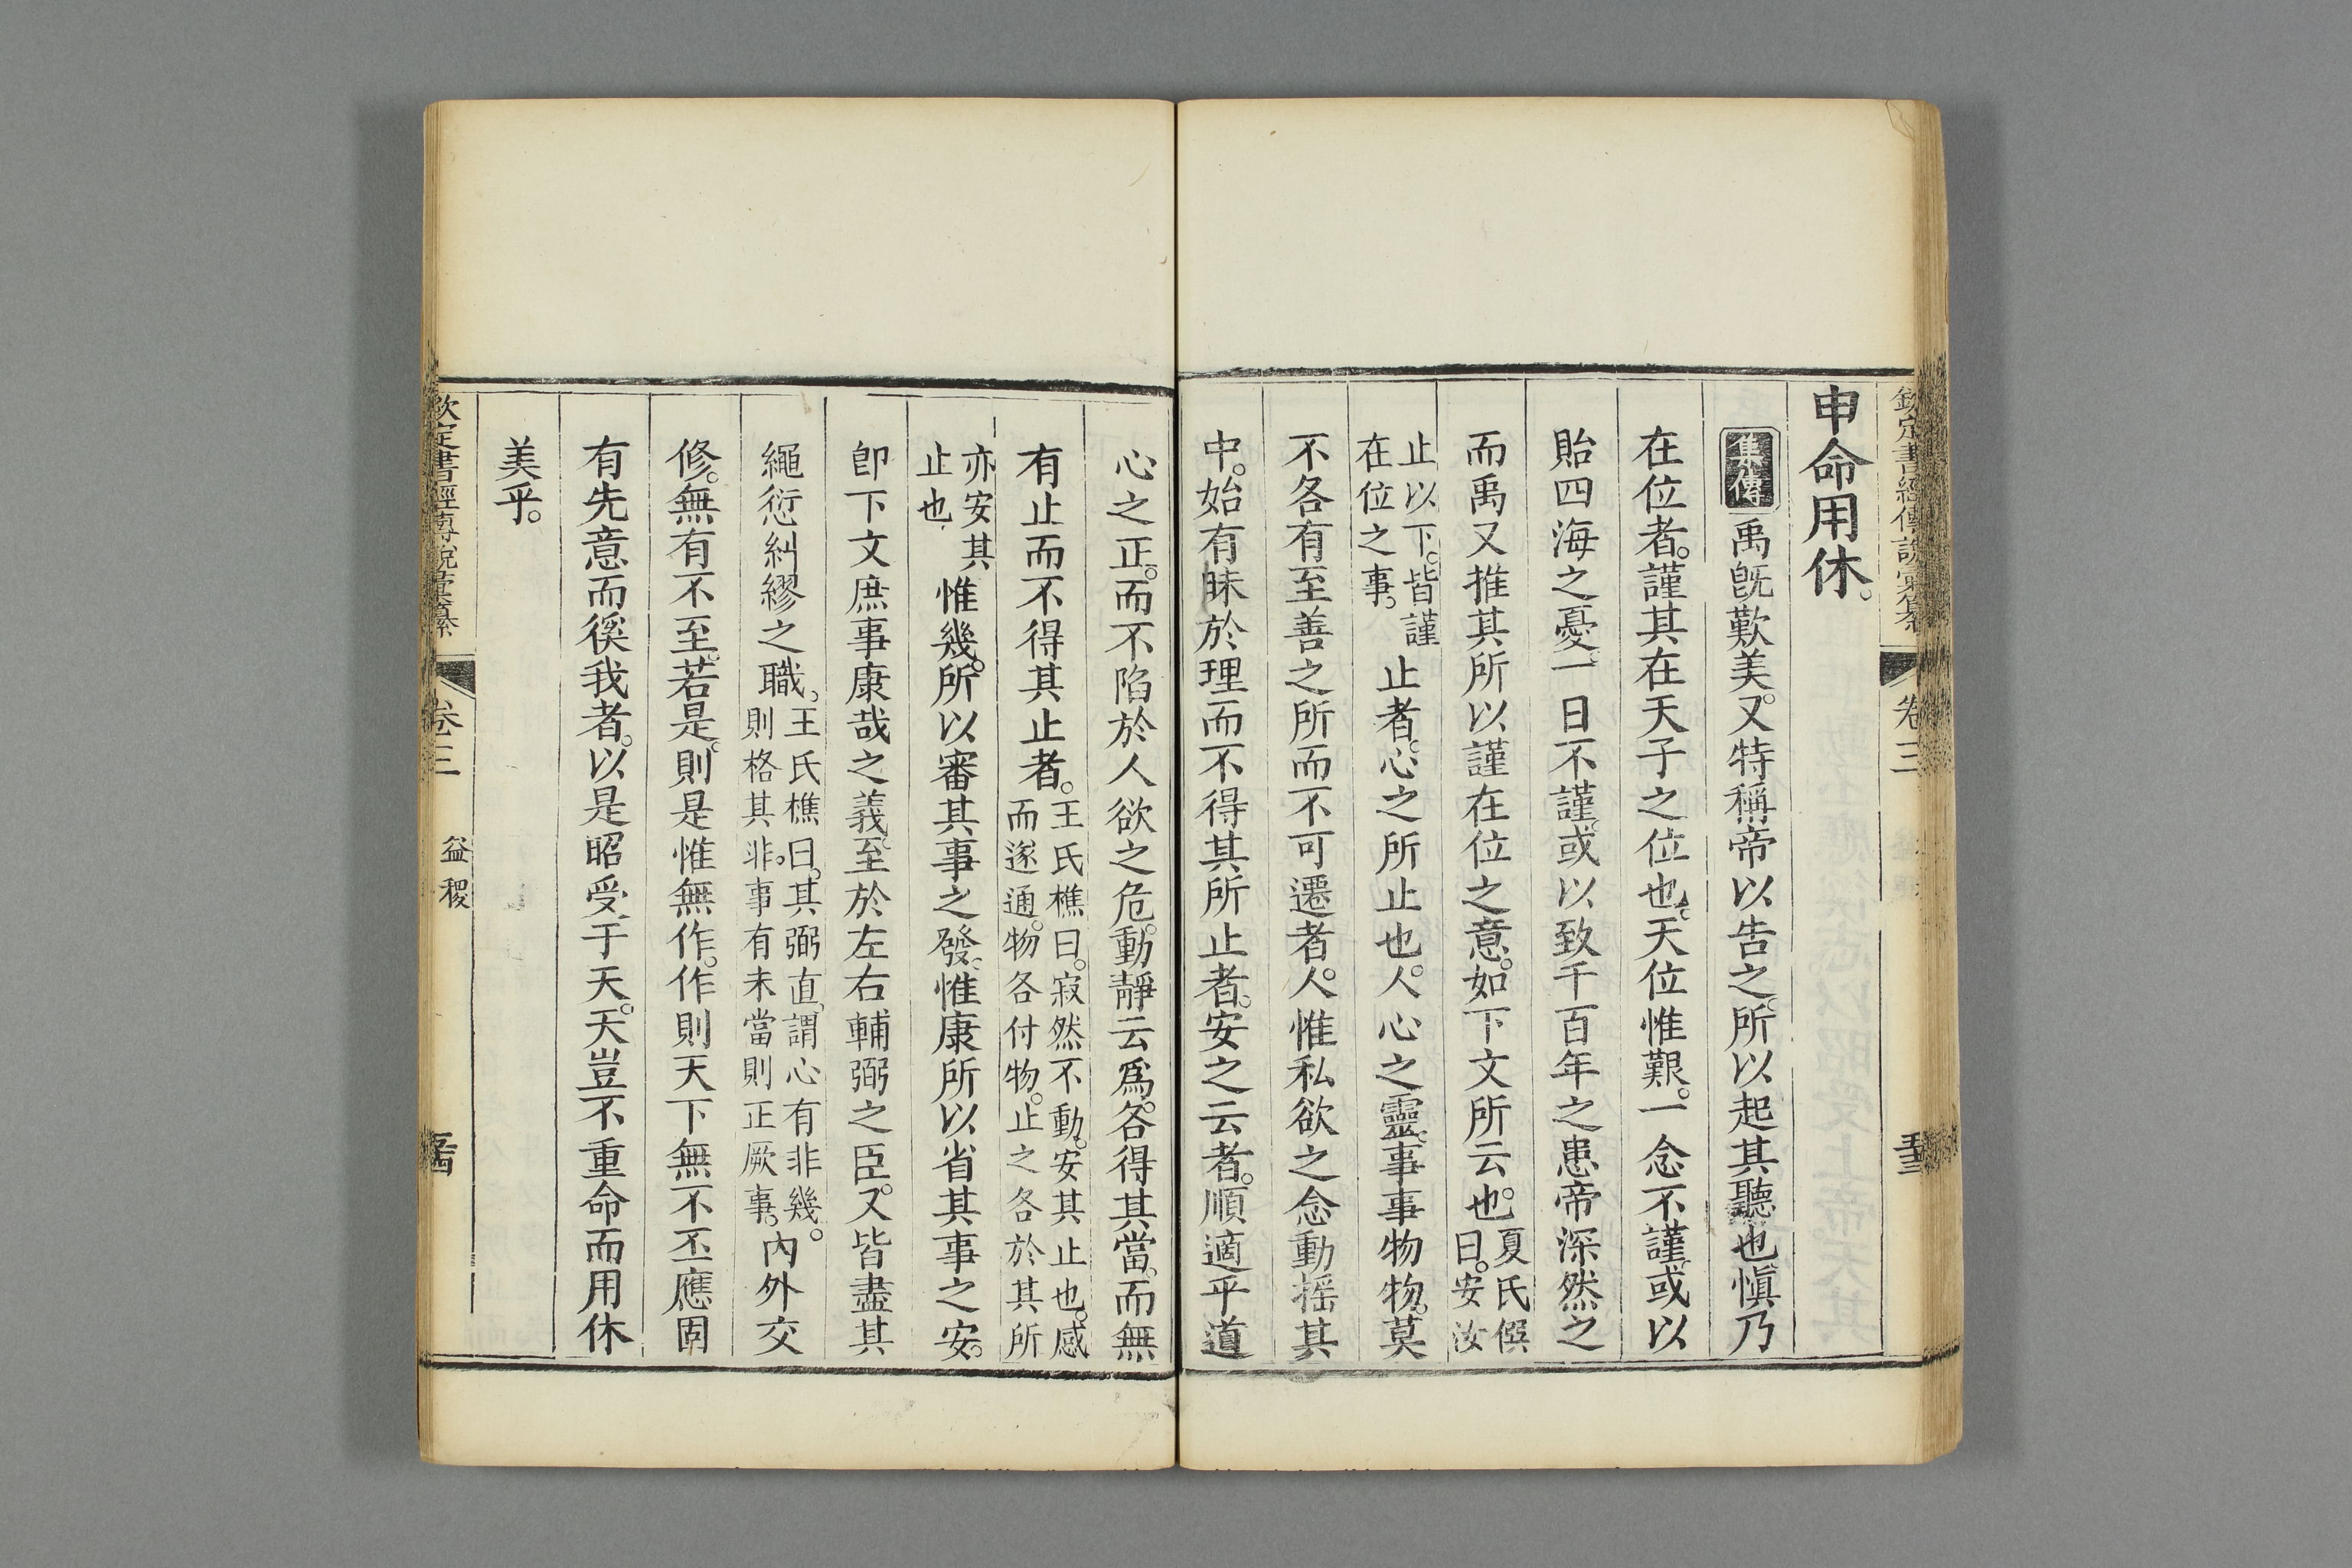 欽定書經傳說彙纂 卷三
申命用休。
集傳 禹旣歎美。又特稱帝以告之。所以起其聽也。愼乃
在位者。謹其在天子之位也。天位惟艱。一念不謹。或以
貽四海之憂。一日不謹。或以致千百年之患。帝深然之
而禹又推其所以謹在位之意。如下文所云也。夏氏僎
曰。安汝
止以下。皆謹
在位之事。止者。心之所止也。人心之靈。事事物物。莫
不各有至善之所而不可遷者。人惟私欲之念動搖其
中。始有昧於理而不得其所止者。安之云者。順適乎道
心之正。而不陷於人欲之危。動靜云爲。各得其當。而無
有止而不得其止者。王氏樵曰。寂然不動。安其止也。感
而遂通。物各付物。止之各於其所
亦安其
止也。惟幾。所以審其事之發。惟康所以省其事之安。
卽下文庶事康哉之義。至於左右輔弼之臣。又皆盡其
繩愆糾繆之職。王氏樵曰。其弼直。謂心有非幾。
則格其非。事有未當則正厥事。內外交
修。無有不至。若是。則是惟無作。作則天下無不丕應固
有先意而徯我者。以是昭受于天。天豈不重命而用休
美乎。
欽定書經傳說彙纂 卷三 益稷